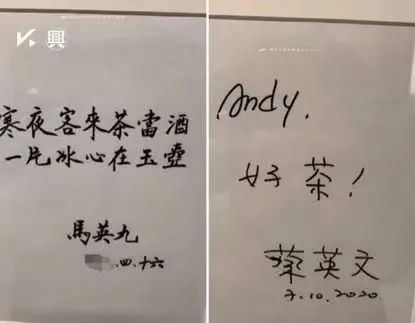 興
寒夜客來茶當酒
一片冰心在玉壺
馬英九
四.十六
Andy.
好茶!
蔡英文
7.10.2020